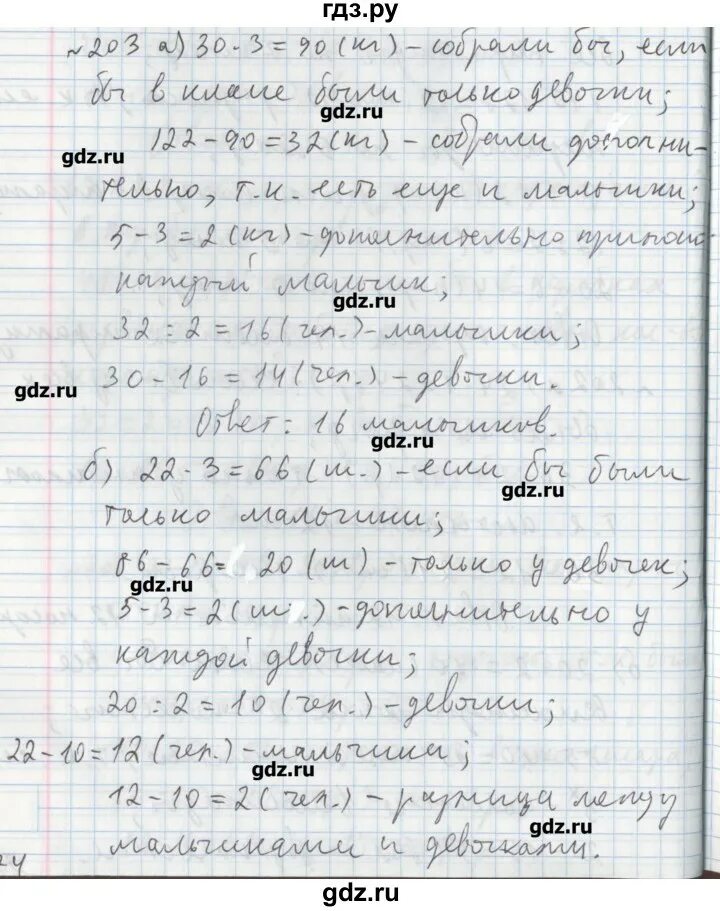 гдз.ру
№203 а) 30·3=90(кг) – собрали бы, если
бы в классе были только девочки;
gdz.ru
122-90=32(кг) – собрали дополни-
gdz.ru
тельно, т.к. есть еще и мальчики;
5-3=2(кг) – дополнительно
каждый мальчик;
gdz.ru
32:2=16(чел.) – мальчики;
30-16=14(чел.) – девочки.
gdz.ru
Ответ: 16 мальчиков.
gdz.ru
б) 22·3=66(ш.) – если бы были
gdz.ru
только мальчики;
86-66=20(ш) – только у девочек;
gdz.ru
5-3=2(ш.) – дополнительно у
каждой девочки;
20:2=10(чел.) – девочки;
22-10=12(чел.) – мальчика;
gdz.ru
12-10=2(чел.) – разница между
gdz.ru
мальчиками и девочками.
24
gdz.ru